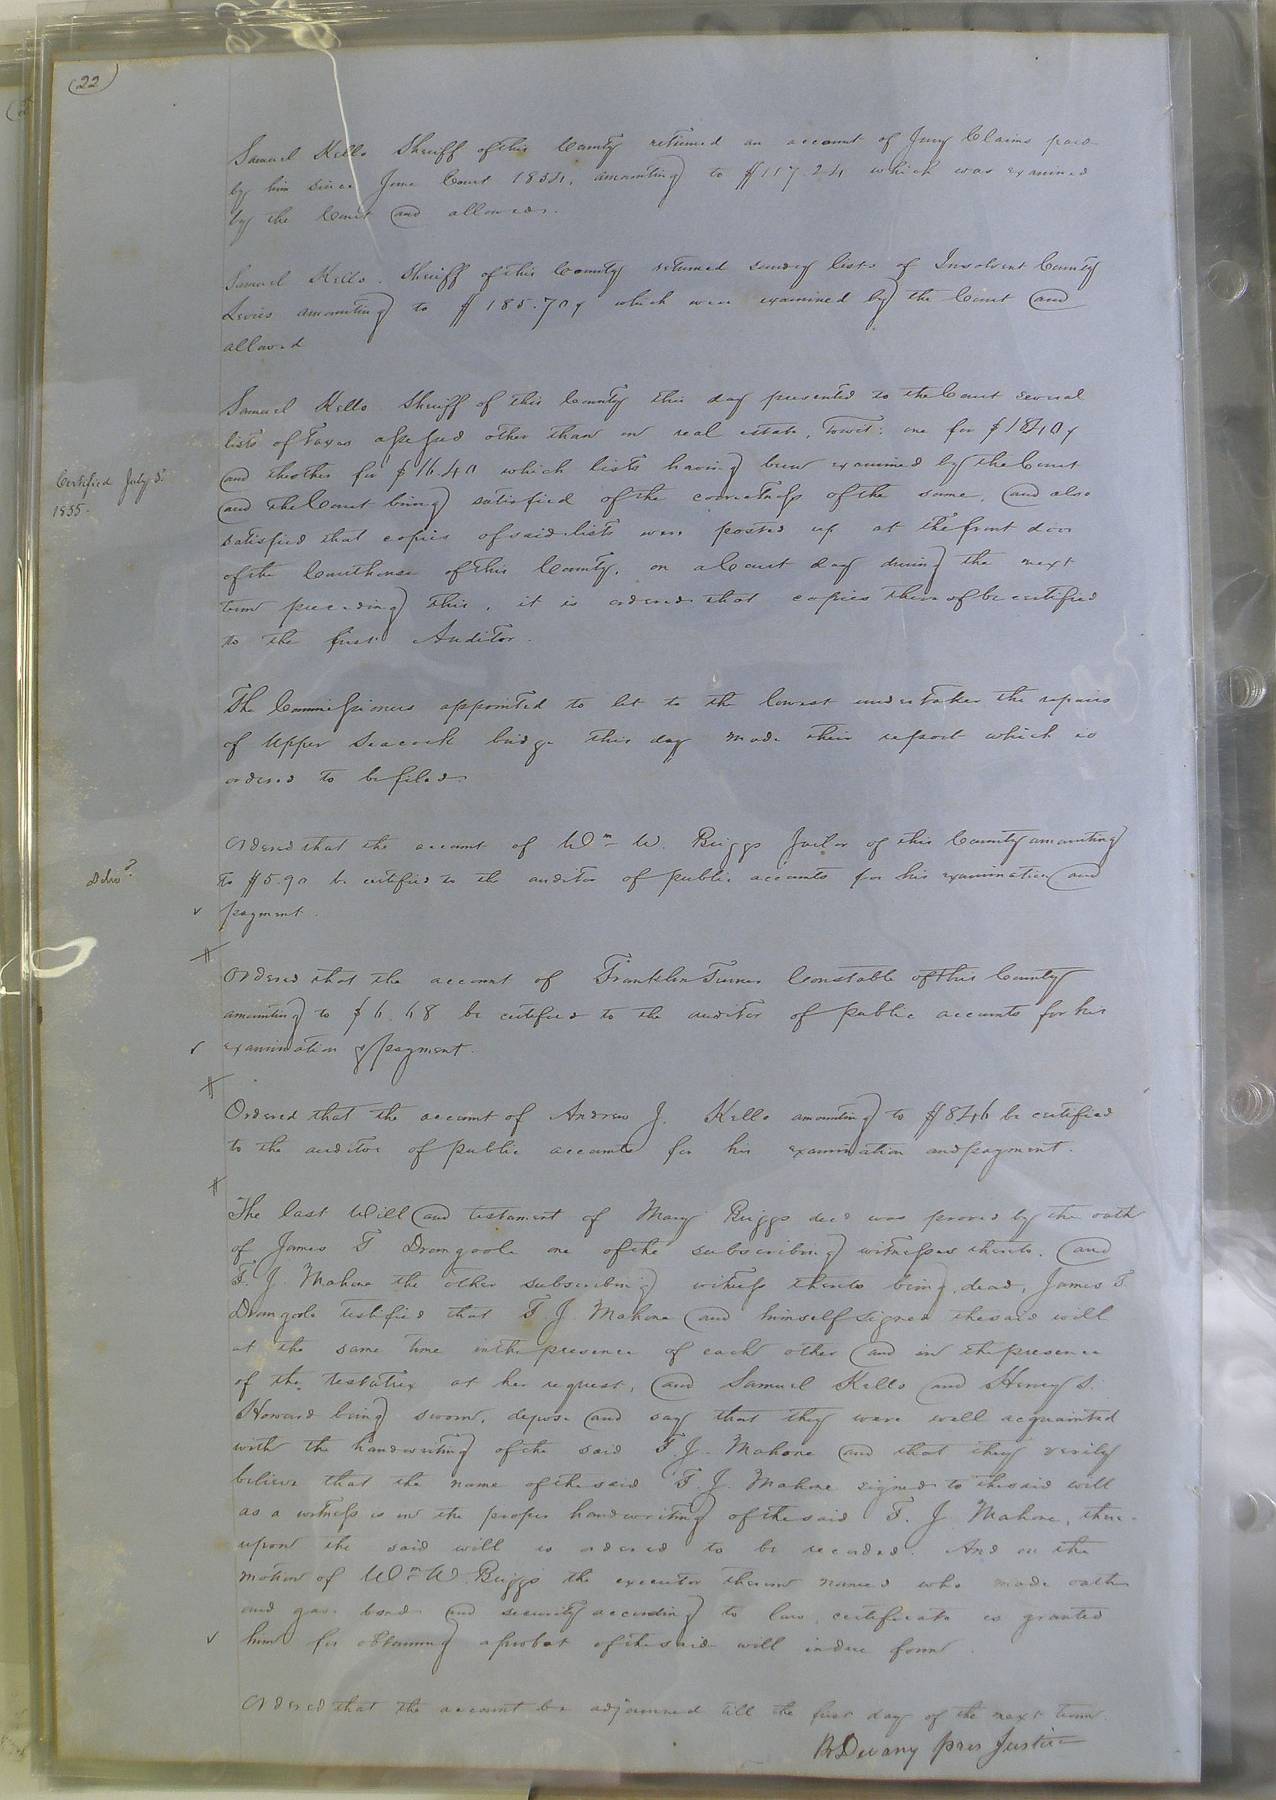 (22)
Samuel Kello Sheriff of this County returned an account of Jury Claims paid
by him since June Court 1854, amounting to $117.24 which was examined
by the Court and allowed.
Samuel Kello. Sheriff of this County returned sundry lists of Insolvent County
Levies amounting to $185.70 which were examined by the Court and
allowed
Samuel Kello Sheriff of this County this day presented to the Court several
lists of Taxes assessed other than on real estate, Towit: one for
and the other for $16.40 which lists having been examined by the Court
Certified July 5th
and the Court being satisfied of the correctness of the same, and also
1855.
satisfied that copies of said lists were posted up at the front door
of the Courthouse of this County, on a Court day during the next
term preceeding this, it is ordered that copies thereof be certified
to the first Auditor.
The Commissioners appointed to let to the lowest undertaker the repairs
of Upper Seacock bridge this day made their report which is
ordered to be filed.
Ordered that the account of Wm W. Briggs Jailor of this County amounting
to $5.90 be certified to the auditor of public accounts for his examination and
payment.
Ordered that the account of Franklin Turner Constable of this County
amounting to $6.68 be certified to the auditor of public accounts for his
examination & payment.
Ordered that the account of Andrew J. Kello amounting to $8.46 be certified
to the auditor of public accounts for his examination and payment.
The last Will and testament of Mary Briggs decd was proved by the oath
of James T Dromgoole one of the subscribing witnesses thereto, and
T. J. Mahone the other subscribing witness thereto being dead, James T.
Dromgoole testified that T. J. Mahone and himself signed the said will
at the same time in the presence of each other and in the presence
of the testatrix at her request, and Samuel Kello and Henry S.
Howard being sworn, depose and say that they were well acquainted
with the handwriting of the said T. J. Mahone and that they verily
believe that the name of the said T. J. Mahone signed to the said will
as a witness is in the proper handwriting of the said T. J. Mahone, there-
upon the said will is ordered to be recorded. And on the
motion of Wm W. Briggs the executor therein named who made oath
and gave bond and security according to law, certificate is granted
him for obtaining a probat of the said will in due form.
Ordered that the account be adjourned till the first day of the next term.
Pres Justice